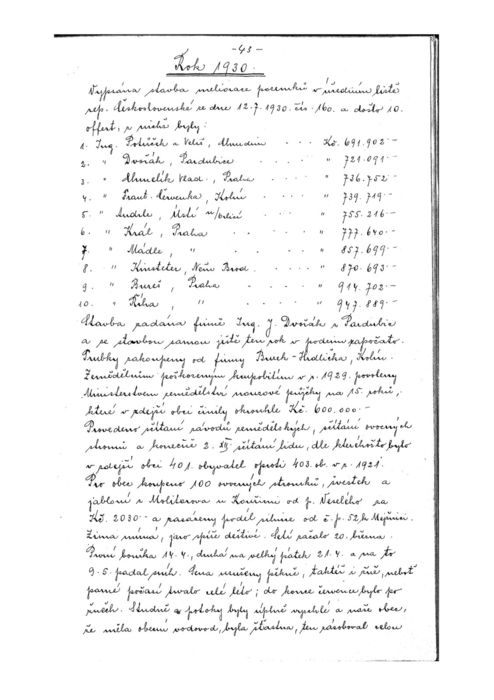 -43-
Rok 1930.
Vypsána stavba meliorace pozemků v úředním listě
rep. Československé ze dne 12.7.1930. čís. 160. a došlo 10.
offert, z nichž byly:
1. Ing. Potůček a Veliš, Chrudim . . . Kč. 691.902.-
2. " Dvořák, Pardubice . . . . " 721.091.-
3. " Chmelík Vlad., Praha . . . . " 736.752.-
4. " Frant. Červenka, Kolín . . . " 739.719.-
5. " Andrle, Ústí n/Orlicí . . . " 755.216.-
6. " Král, Praha . . . . " 777.640.-
7. " Mádle, " . . . . " 857.699.-
8. " Kinsteter, Něm. Brod. . . . . " 870.693.-
9. " Bureš, Praha . . . . " 914.702.-
10. " Říha, " . . . . " 947.889.-
Stavba zadána firmě Ing. J. Dvořák z Pardubic
a se stavbou samou ještě ten rok v podzim započato.
Trubky zakoupeny od firmy Bruch-Hrdlička, Kolín.
Zemědělcům poškozeným krupobitím v r. 1929. povoleny
Ministerstvem zemědělství nouzové půjčky na 15. roků,
které v zdejší obci činily okrouhle Kč. 600.000.-
Provedeno sčítání závodů zemědělských, sčítání ovocných
stromů a konečně 2. XII. sčítání lidu, dle kteréhožto bylo
v zdejší obci 401. obyvatel oproti 403. ob. v r. 1921.
Pro obec koupeno 100 ovocných stromků, švestek a
jabloní z Moliterova u Kouřimi od p. Veselého za
Kč. 2030.- a zasázeny podél silnice od č.p. 52 k
Zima mírná, jaro spíše deštivé. Setí začalo 20. března.
První bouřka 14.4., druhá na velký pátek 21.4. a na to
9.5. padal sníh. Sena sušeny pěkně, taktéž i žně, neboť
parné počasí trvalo celé léto; do konce července bylo po
žních. Studně a potoky byly úplně vyschlé a naše obec,
že měla obecní vodovod, byla šťastna, ten zásoboval celou